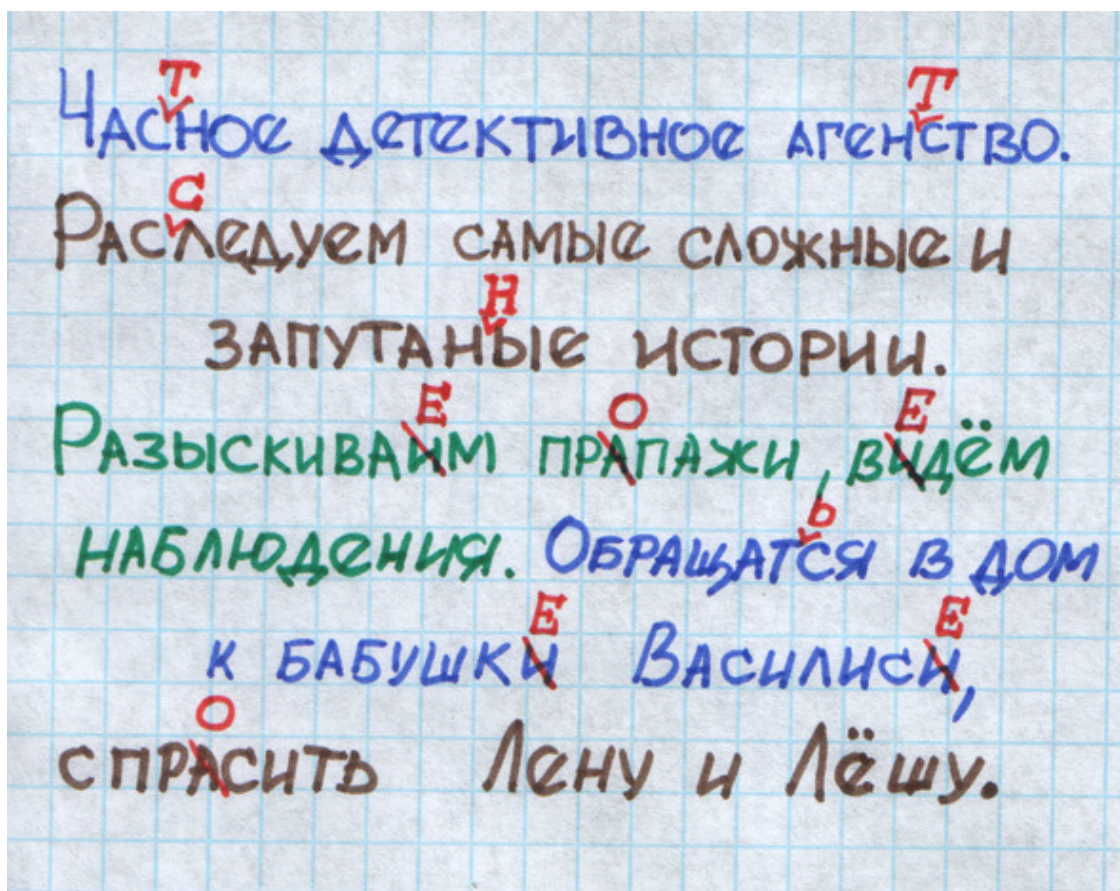 Т Т
Часное детективное агенство.
С
Раследуем самые сложные и
Н
запутаные истории.
Е О Е
Разыскиваим прапажи, видём
Ь
наблюдения. Обращатся в дом
Е Е
к бабушки Василиси,
О
спрасить Лену и Лёшу.